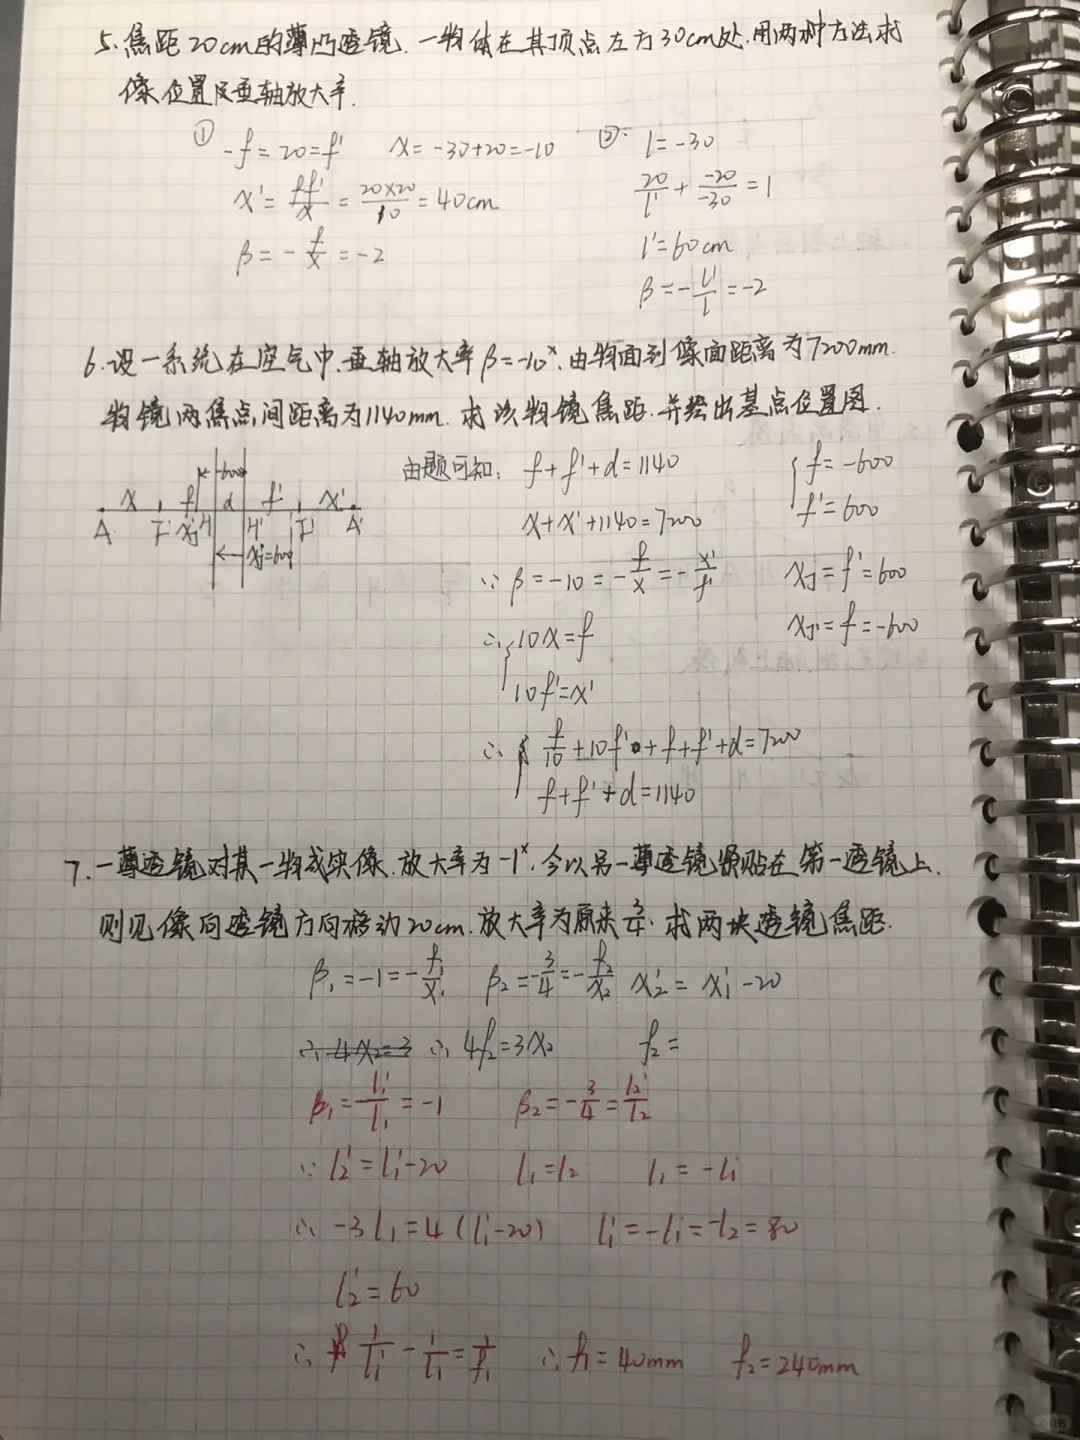 5. 焦距20cm的薄凸透镜. 一物体在其顶点左方30cm处. 用两种方法求
像位置及垂轴放大率.
① -f=20=f' x=-30+20=-10
x'=ff'/x=20×20/10=40cm
β=-f/x=-2
②. l=-30
20/l'+-20/-30=1
l'=60cm
β=-l'/l=-2
6. 设一系统在空气中. 垂轴放大率β=-10ˣ. 由物面到像面距离为7200mm.
物镜两焦点间距离为1140mm. 求该物镜焦距. 并绘出基点位置图.
-600
x f d f' x'
A F xJ' H H' F' A'
xJ=600
由题可知: f+f'+d=1140
x+x'+1140=7200
∵ β=-10=-f/x=-x'/f'
∴ { 10x=f
10f'=x'
∴ { f/10+10f'+f+f'+d=7200
f+f'+d=1140
{ f=-600
f'=600
xJ=f'=600
xJ'=f=-600
7. 一薄透镜对某一物成实像. 放大率为-1ˣ. 今以另一薄透镜紧贴在第一透镜上.
则见像向透镜方向移动20cm. 放大率为原来3/4. 求两块透镜焦距.
β₁=-1=-f₁/x₁ β₂=-3/4=-f₂/x₂ x₂'=x₁'-20
∴ 4x₂=3 ∴ 4f₂=3x₂ f₂=
β₁=-l₁'/l₁=-1 β₂=-3/4=l₂'/l₂
∵ l₂'=l₁'-20 l₁=l₂ l₁=-l₁
∴ -3l₁=4(l₁'-20) l₁'=-l₁=-l₂=80
l₂'=60
∴ 1/l₁'-1/l₁=1/f₁ ∴ f₁=40mm f₂=240mm